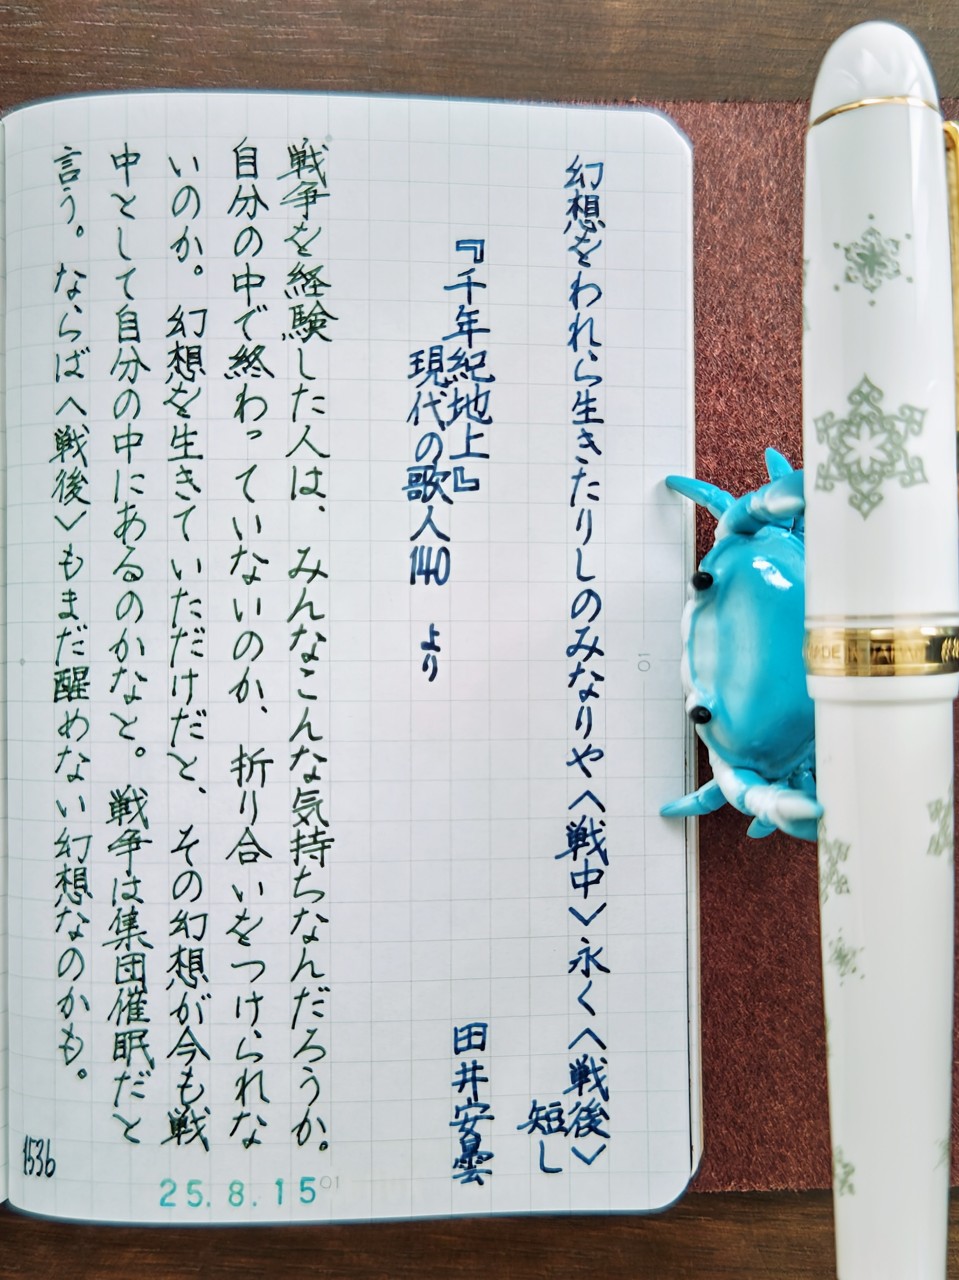 幻想をわれら生きたりしのみなりや〈戦中〉永く〈戦後〉
短し
『千年紀地上』
田井安曇
現代の歌人140 より
戦争を経験した人は、みんなこんな気持ちなんだろうか。
自分の中で終わっていないのか、折り合いをつけられな
いのか。幻想を生きていただけだと、その幻想が今も戦
中として自分の中にあるのかなと。戦争は集団催眠だと
言う。ならば〈戦後〉もまだ醒めない幻想なのかも。
1536
25.8.15
10
10
MADE IN JAPAN